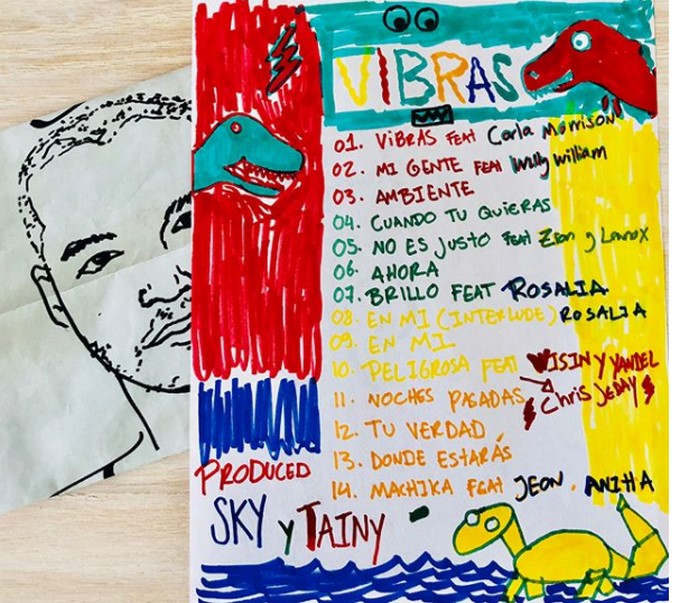 VIBRAS
01. VIBRAS FEAT Carla Morrison
02. MI GENTE FEAT Willy William
03. AMBIENTE
04. CUANDO TU QUIERAS
05. NO ES JUSTO FEAT Zion y Lennox
06. AHORA
07. BRILLO FEAT ROSALIA
08. EN MI (INTERLUDE) ROSALIA
09. EN MI
10. PELIGROSA FEAT WISIN Y YANDEL
Chris JEDAY
11. NOCHES PASADAS
12. TU VERDAD
13. DONDE ESTARÁS
14. MACHIKA FEAT JEON. ANITTA
PRODUCED
SKY y TAINY